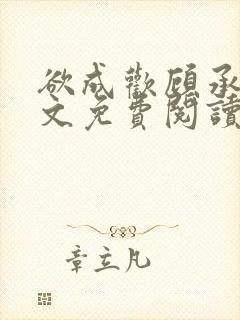 欲成歡顧承
文免費閱讀
章立凡